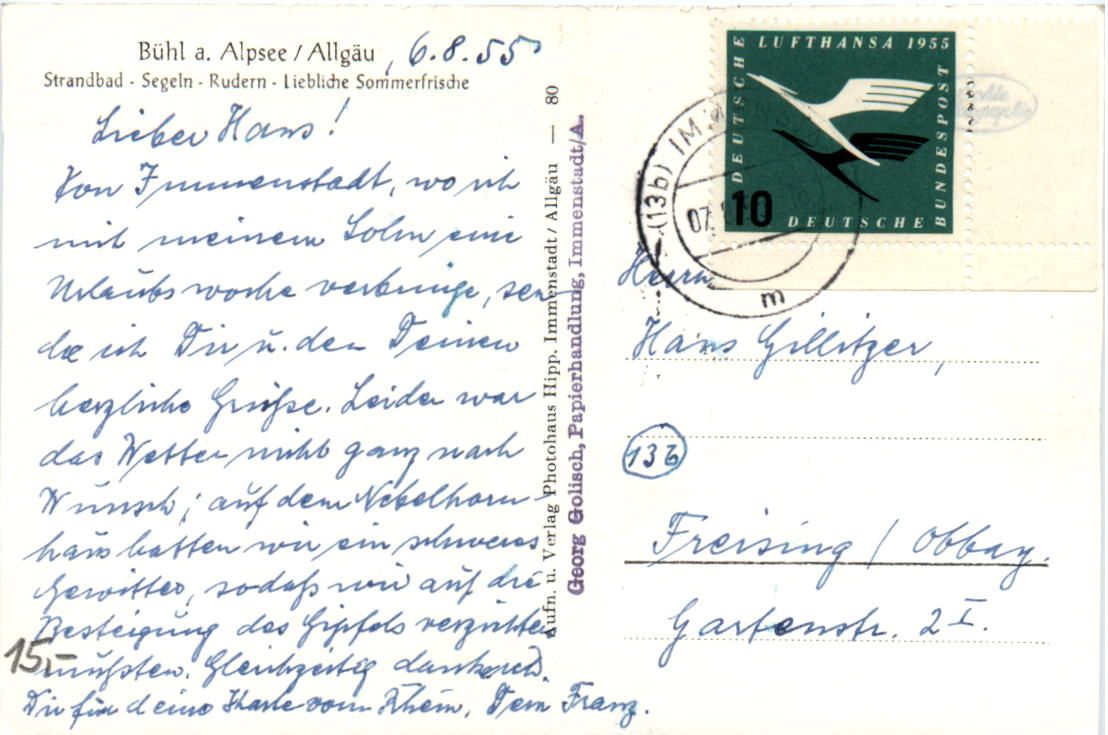 Bühl a. Alpsee / Allgäu, 6.8.55
Strandbad - Segeln - Rudern - Liebliche Sommerfrische
Lieber Hans!
Von Immenstadt, wo ich
mit meinem Sohn eine
Urlaubswoche verbringe, sen-
de ich Dir u. den Deinen
herzliche Grüße. Leider war
das Wetter nicht ganz nach
Wunsch; auf dem Nebelhorn-
haus hatten wir ein schweres
Gewitter, sodaß wir auf die
Besteigung des Gipfels verzichten
mußten. Gleichzeitig danke ich
Dir für deine Karte vom Rhein. Dein Franz.
15,-
Aufn. u. Verlag Photohaus Hipp. Immenstadt / Allgäu — 80
Georg Golisch, Papierhandlung, Immenstadt/A.
LUFTHANSA 1955
DEUTSCHE
DEUTSCHE
BUNDESPOST
10
(13b) IMMENS
07.
m
Herrn
Hans Gillitzer,
13b
Freising / Obbay.
Gartenstr. 2 I.